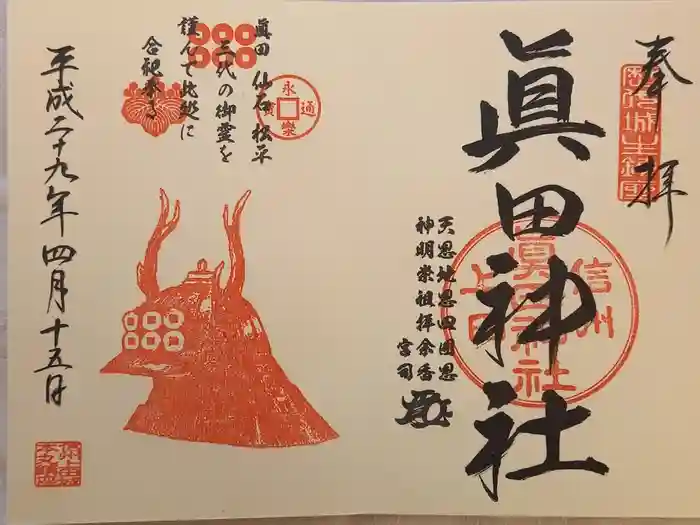 奉拝
眞田神社
信州
上田
眞田神社
天恩地恩四囲恩
神明崇祖拝余香
宮司
眞田 仙石 松平
三代の御霊を
謹んで此処に
合祀奉る
永樂通寳
平成二十九年四月十五日